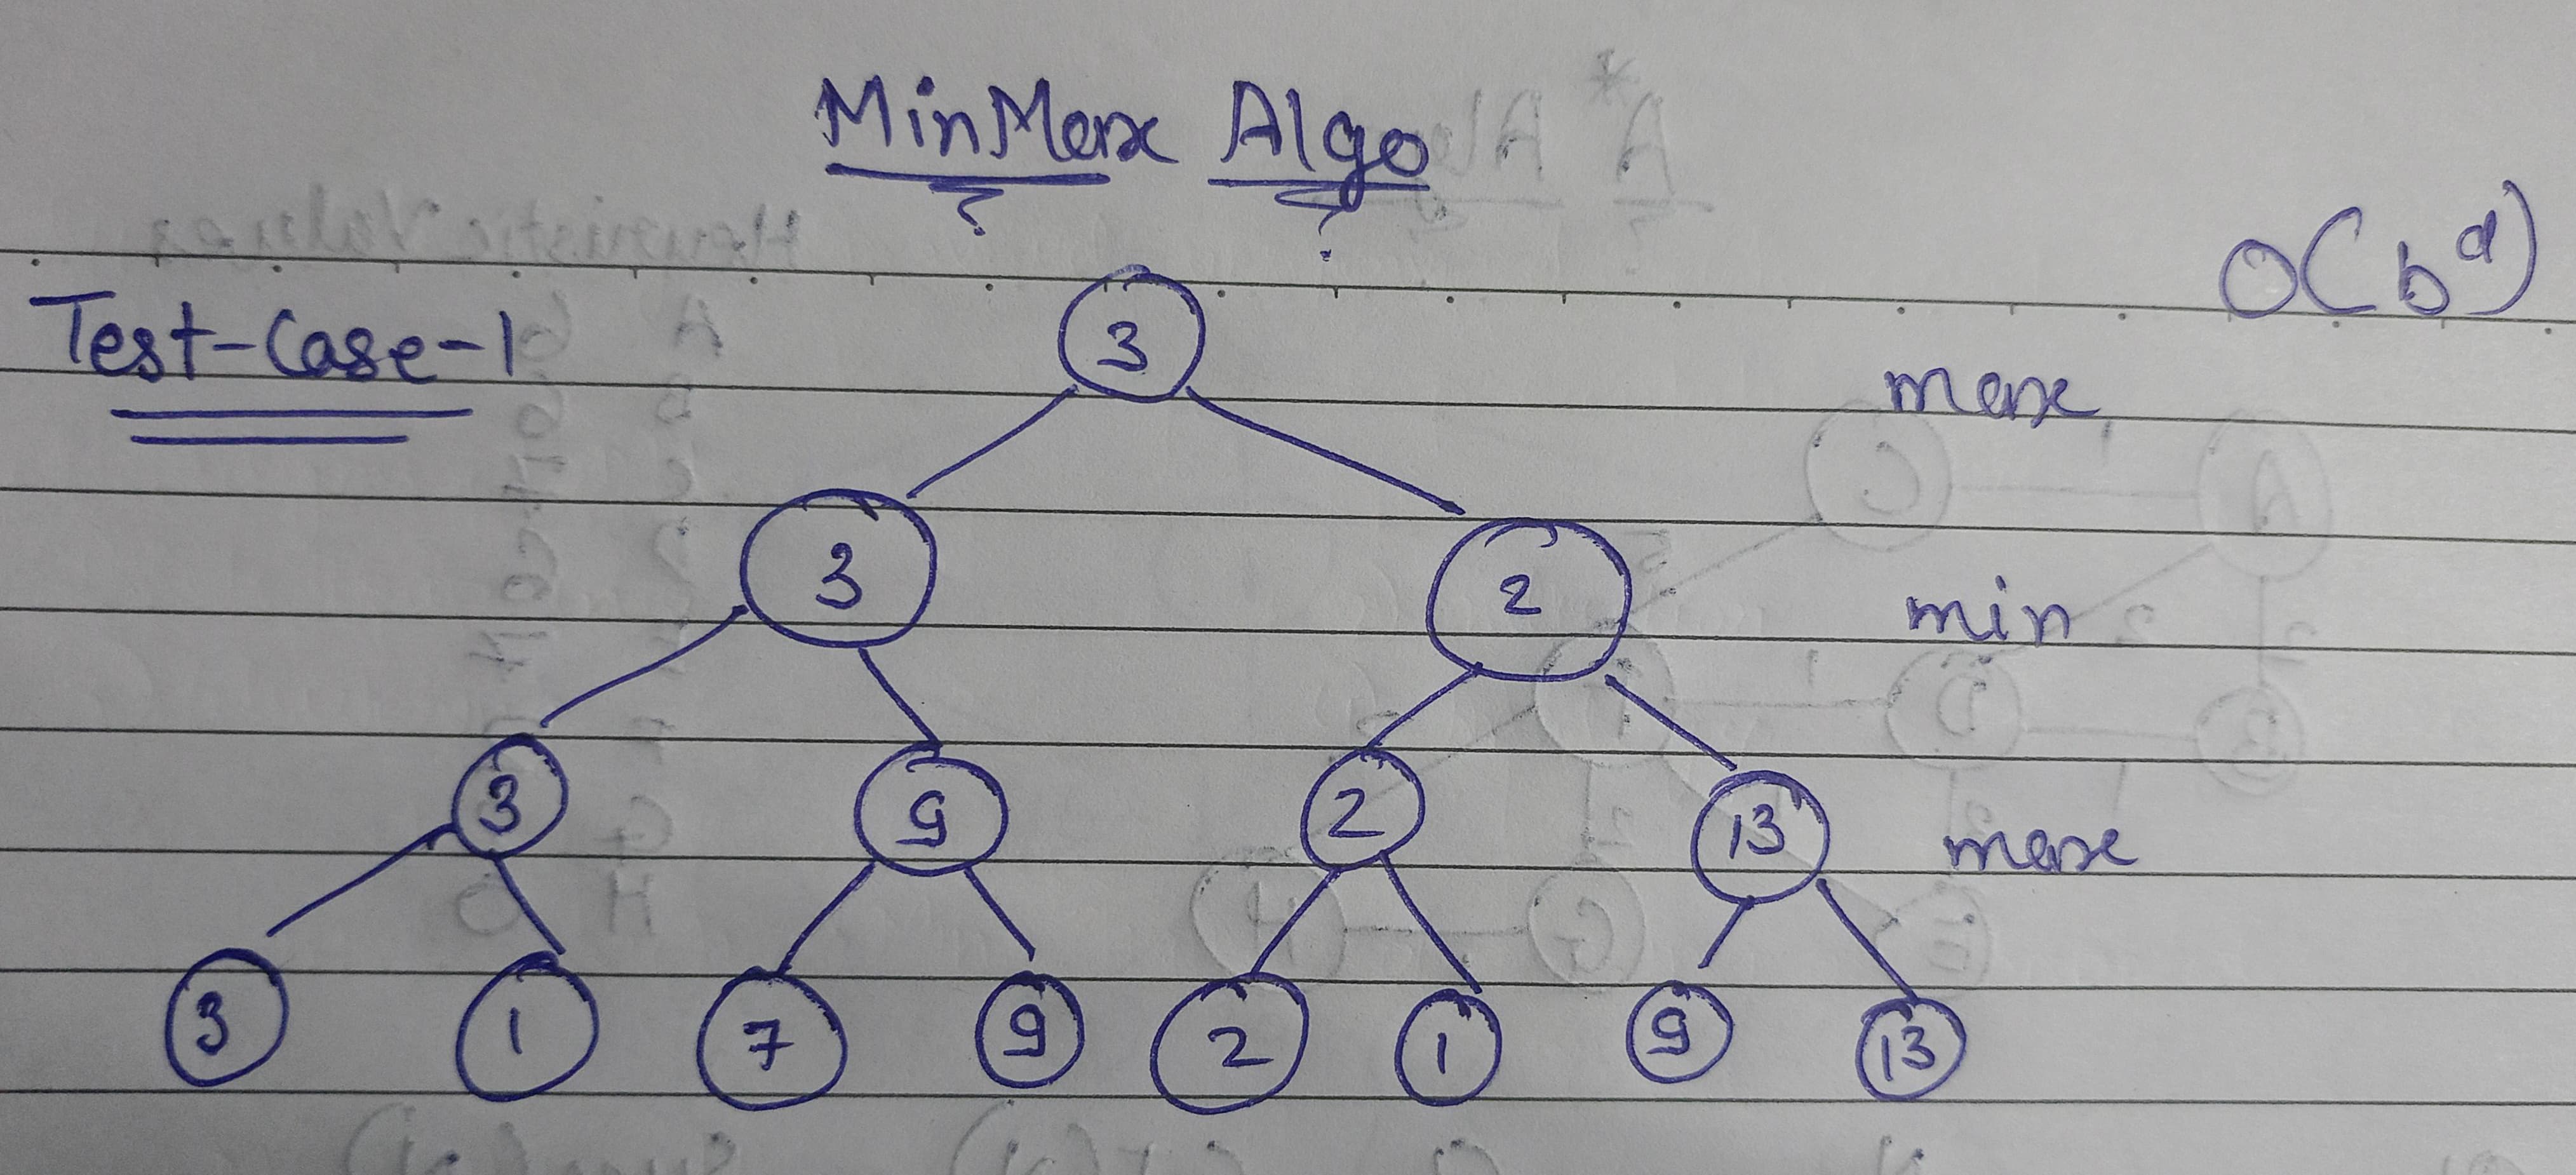 MinMax Algo
O(b^d)
Test-Case-1
3
max
3 2
min
3 9 2 13
max
3 1 7 9 2 1 9 13